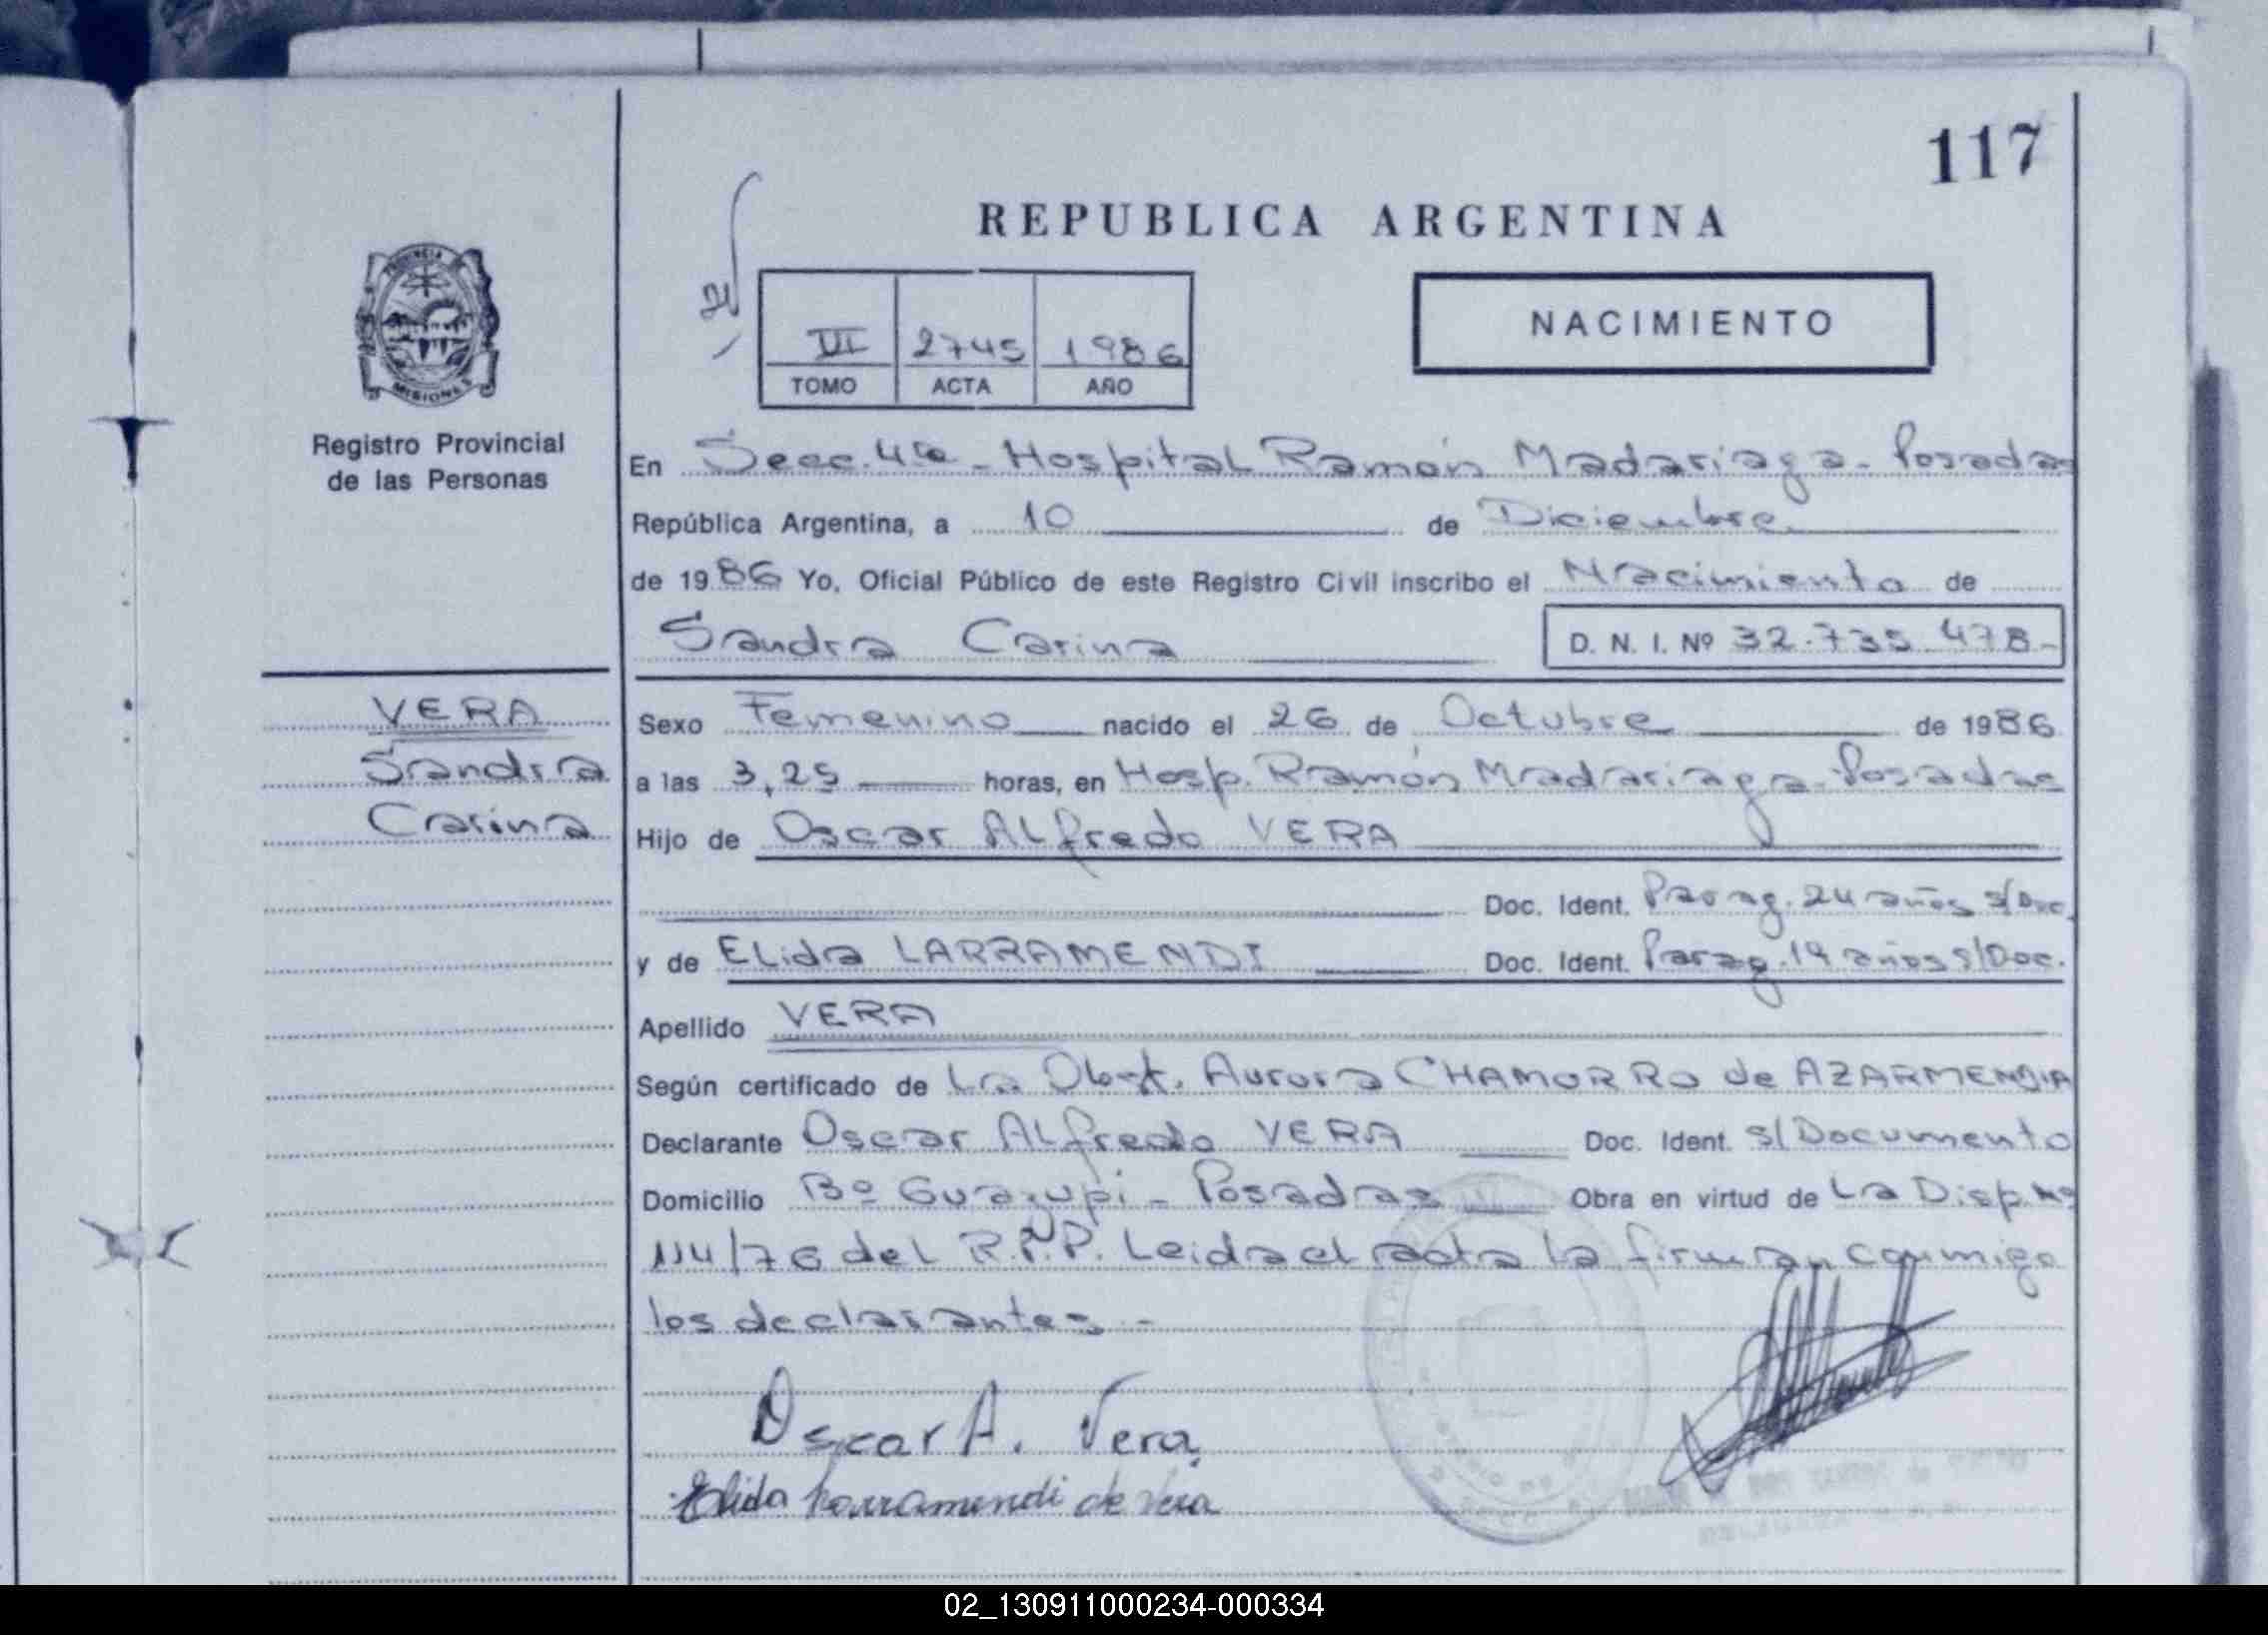 117
REPUBLICA ARGENTINA
PROVINCIA
MISIONES
Registro Provincial
de las Personas
VI 2745 1986
TOMO ACTA AÑO
NACIMIENTO
En Secc. 4ta - Hospital Ramón Madariaga - Posadas
República Argentina, a 10 de Diciembre
de 1986 Yo, Oficial Público de este Registro Civil inscribo el Nacimiento de
Sandra Carina D. N. I. Nº 32.735.478-
VERA
Sandra
Carina
Sexo Femenino nacido el 26 de Octubre de 1986
a las 3,25 horas, en Hosp. Ramón Madariaga - Posadas
Hijo de Oscar Alfredo VERA
Doc. Ident. Parag. 24 años s/Doc.
y de Elida LARRAMENDI Doc. Ident. Parag. 19 años s/Doc.
Apellido VERA
Según certificado de La Obst. Aurora CHAMORRO de AZARMENDIA
Declarante Oscar Alfredo VERA Doc. Ident. s/Documento
Domicilio Bº Guazupi - Posadas Obra en virtud de La Disp. Nº
114/76 del R.P.P. Leida el acta la firman conmigo
los declarantes -
Oscar A. Vera
Elida Larramendi de Vera
02_130911000234-000334